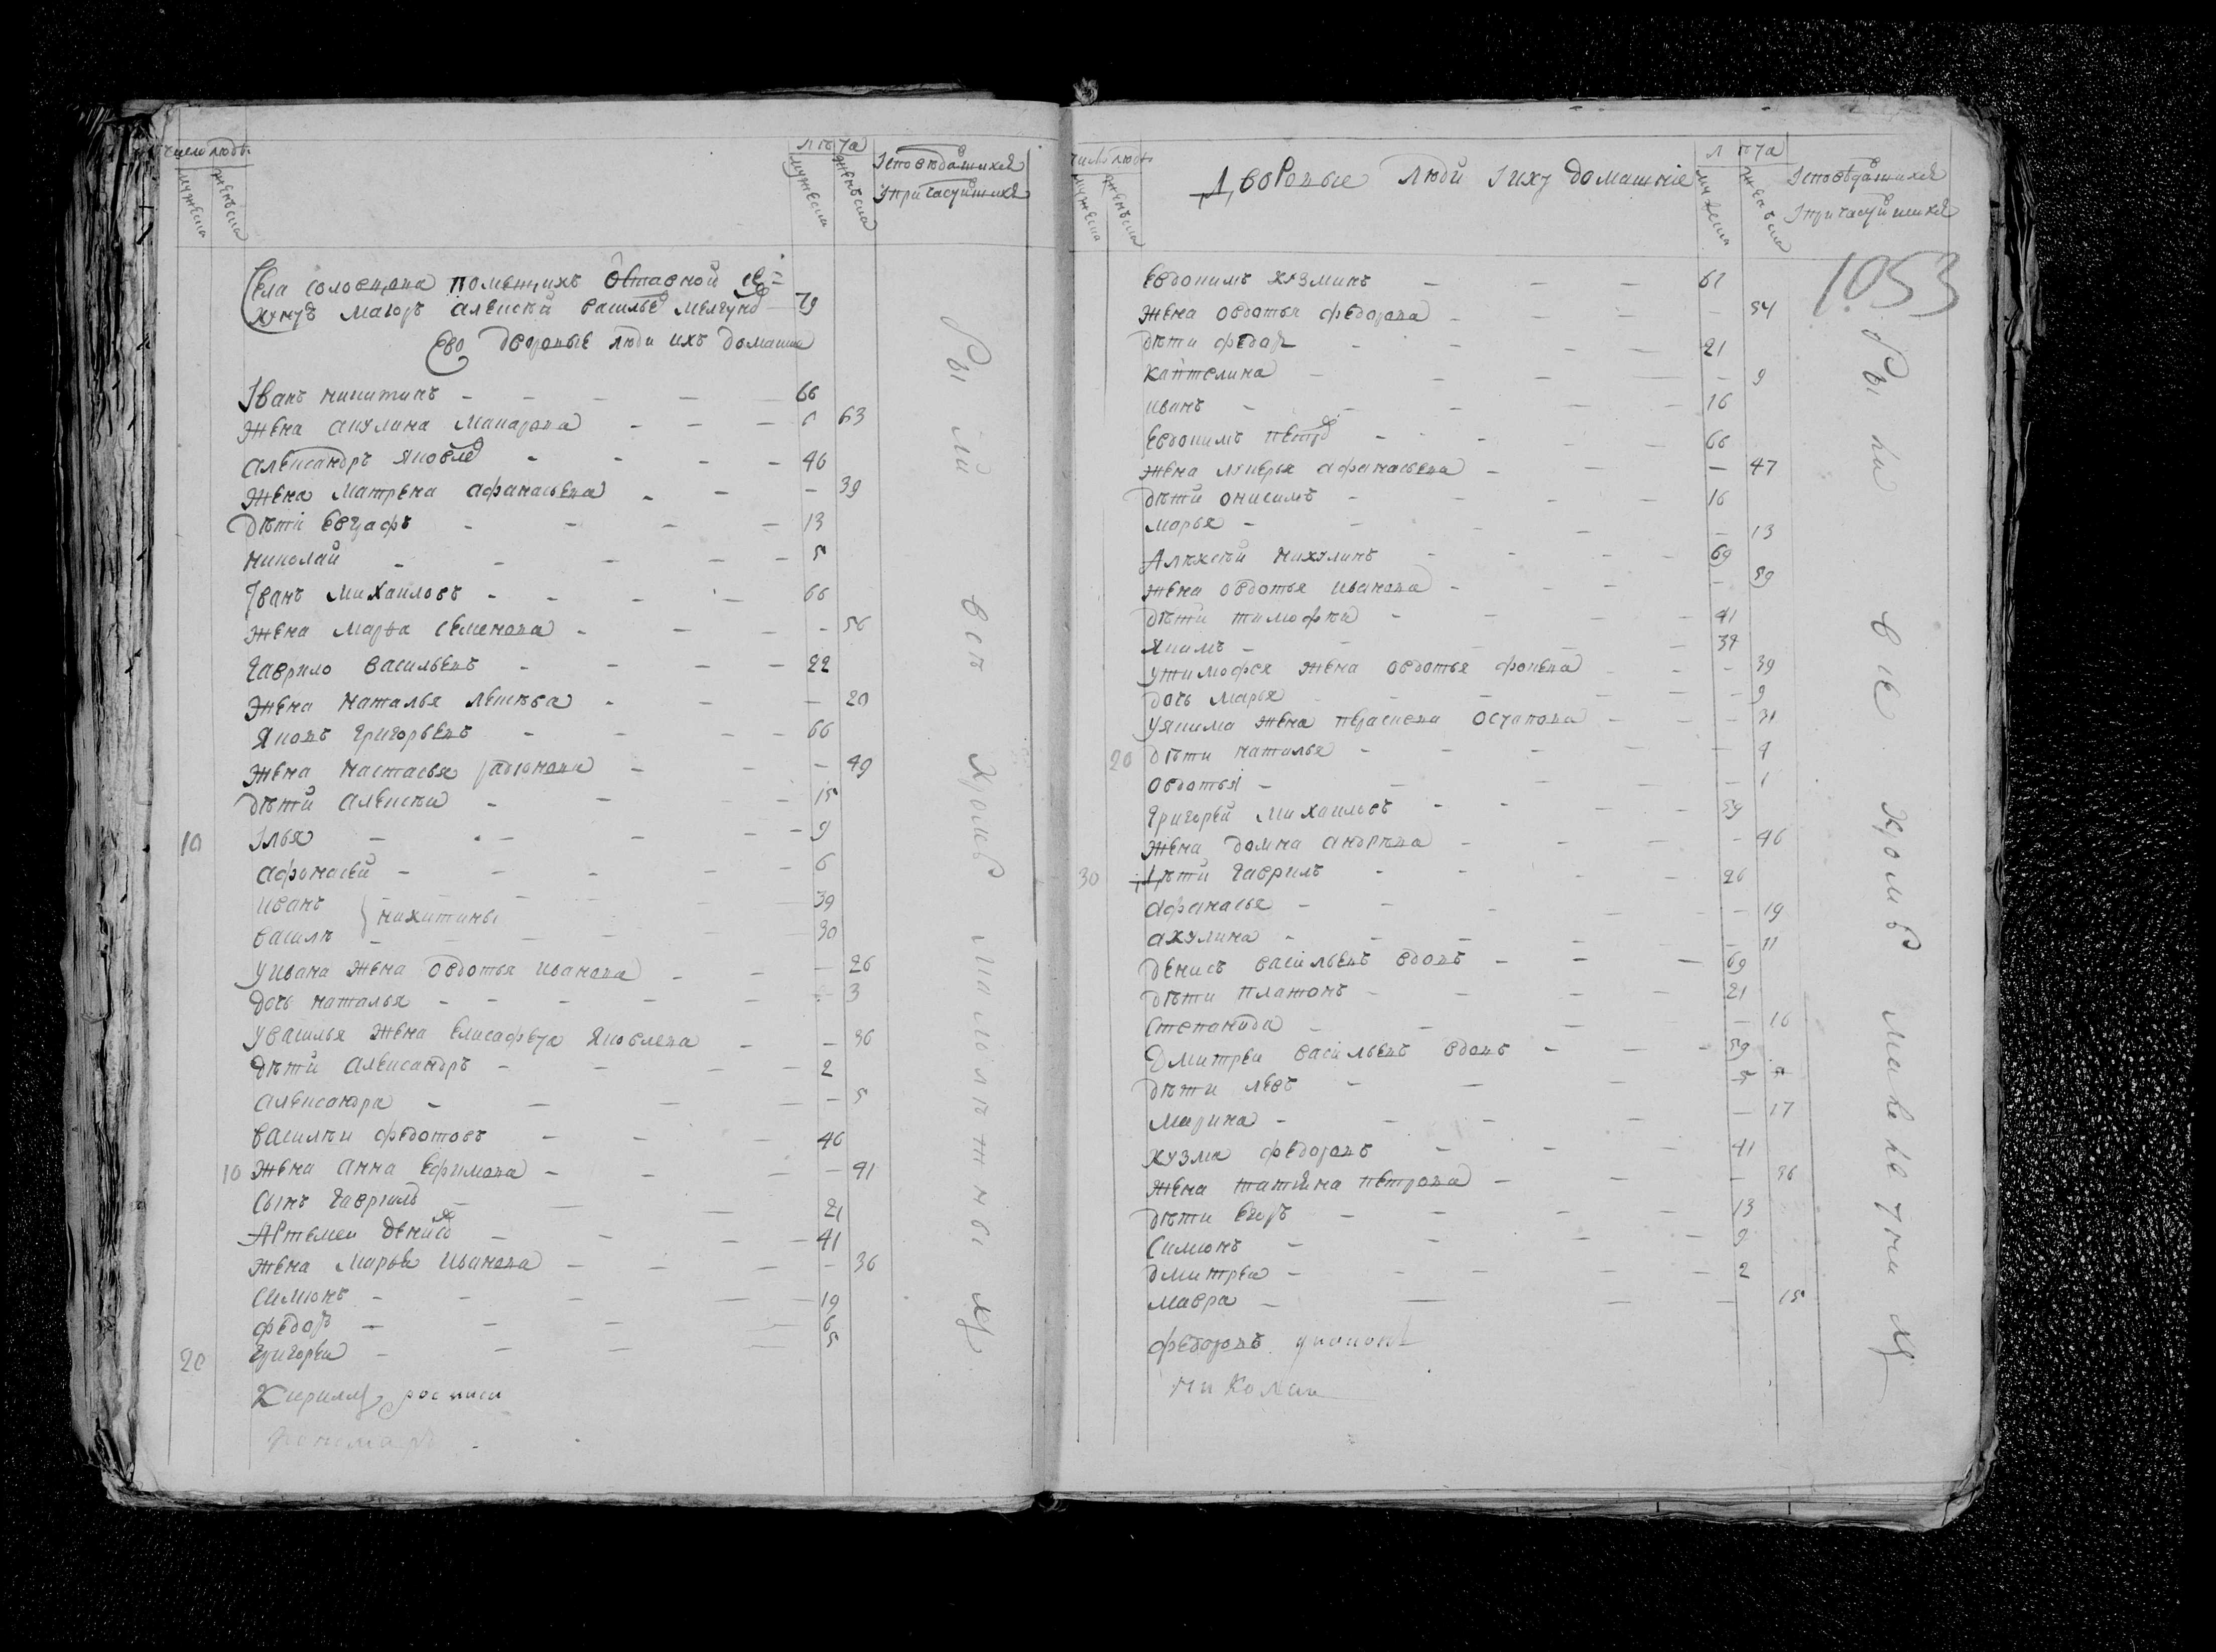 число людъ
мужеска
женъска
лѣта
мужеска
женъска
Ісповѣдашихся
Іпричасшихся
Села помещикъ отставной се=
кундъ маіоръ алексѣй василье 79
Ево дворовые люди ихъ домашни
Іванъ никитинъ - - - - - 66
жена акулина макарова - - - 63
александръ яковле - - - - 46
жена матрена афанасьева - - - 39
дѣти евграфъ - - - - 13
николай - - - - - 5
Іванъ михаиловъ - - - - 66
жена марѳа семенова - - - - 56
гаврило васильевъ - - - - 22
жена наталья - - - 20
яковъ григорьевъ - - - - 66
жена настасья радіонова - - - 49
дѣти алексѣи - - - 15
10 Ілья - - - - - 9
афонасеи - - - - - 6
иванъ - - - - 39
никитины
василѣ - - - - 30
у ивана жена овдотья иванова - - - 26
дочь наталья - - - - - 3
у василья жена елисафета яковлева - - 36
дѣти александръ - - - - 2
александра - - - - - 5
василѣи федотовъ - - - 46
10 жена анна ефимова - - - - 41
сынъ гаврилъ - - - 21
Артемеи денисо - - - - 41
жена марѳа иванова - - - - 36
симіонъ - - - - - 19
федоръ - - - - 6
20 григореи - - - - 5
росписи
пономарь
Ры ли всѣ кромѣ малолѣтныхъ
число людъ
мужеска
женъска
Дворовые люди і ихъ домашніе
лѣта
мужеска
женъска
Ісповѣдашихся
Іпричасшихся
1053
Евдокимъ кузминъ - - - 61
жена овдотья федорова - - - - 54
дѣти федоръ - - - - 21
каптелина - - - - - 9
иванъ - - - - - 16
Евдокимъ петро - - - - 66
жена лукерья афанасьева - - - 47
дѣти онисимъ - - - - 16
марья - - - - - 13
Алексѣи никулинъ - - - - 69
жена овдотья иванова - - - - 59
дѣти тимофѣи - - - - 41
якимъ - - - - 37
у тимофея жена овдотья - - - 39
дочь марья - - - - 9
у якима жена остапова - - - 31
20 дѣти наталья - - - - - 4
овдотья - - - - 1
григореи михаиловъ - - - - 59
жена домна андрѣева - - - - 46
30 дѣти гаврилъ - - - - 26
афанасья - - - - - 19
акулина - - - - - 11
денисъ васильевъ вдовъ - - - 69
дѣти платонъ - - - - 21
степанида - - - - 16
дмитреи васильевъ вдовъ - - - 59
дѣти левъ - - - 5
марина - - - - - 17
кузма федоровъ - - - 41
жена татияна петрова - - - 36
дѣти егоръ - - - - 13
симіонъ - - - - - 9
дмитреи - - - - - 2
мавра - - - - 15
федоровъ
николаи
Ры ли всѣ кромѣ